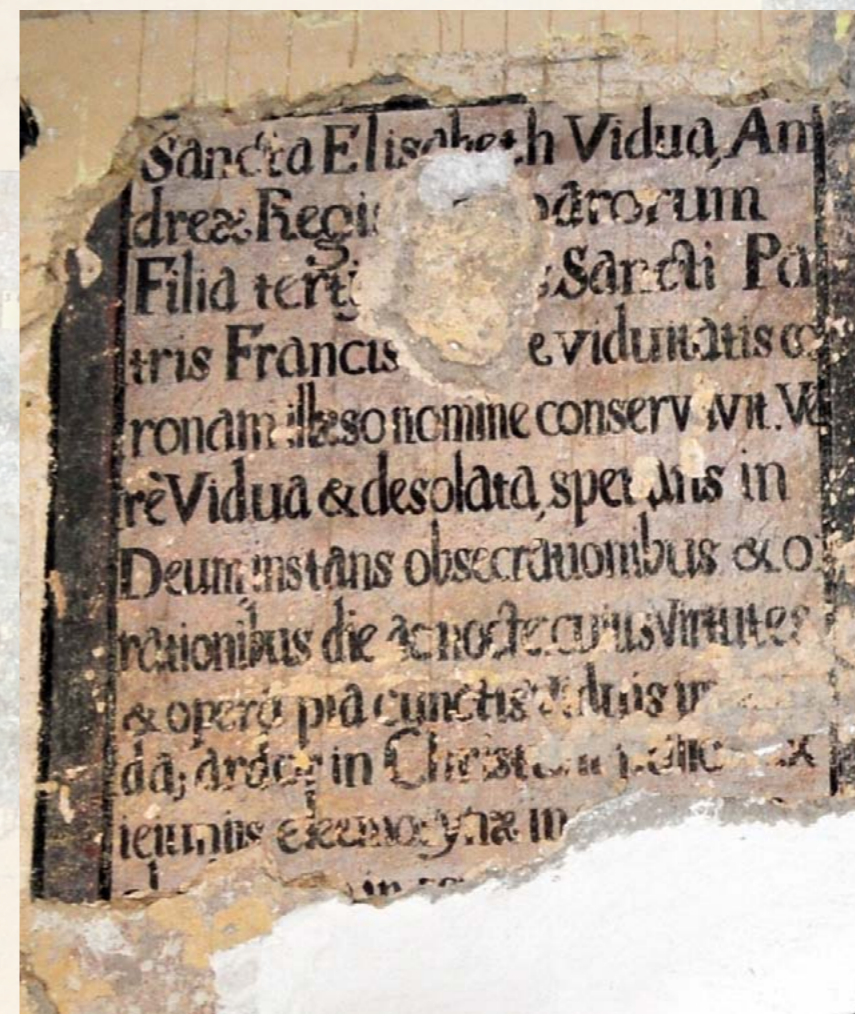 Sancta Elisabeth Vidua, An
dreæ Regis
Filia Sancti Pa
tris Francis e viduitatis co
ronam illæso nomine conserv Ve
rè Vidua & desolata, sperans in
Deum instans obsecrationibus & o
rationibus die ac nocte cuius Virtutes
& opera pia cunctis viduis
da; ardor in
ieiuniis eleemosynæ in
in